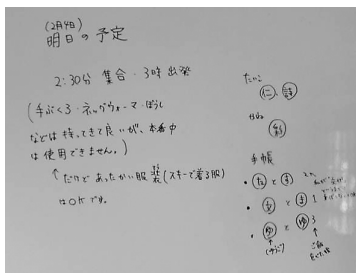 (2月4日)
明日の予定
2:30分 集合・3時出発
(手ぶくろ・ネックウォーマ・ぼうし
などは持ってきて良いが、本番中
は使用できません。)
↑だけどあったかい服装(スキーで着る服)
はOKです。
たいこ
仁、詩
彩
手帳
・た と す
・と 1
・ゆ と ゆ 3